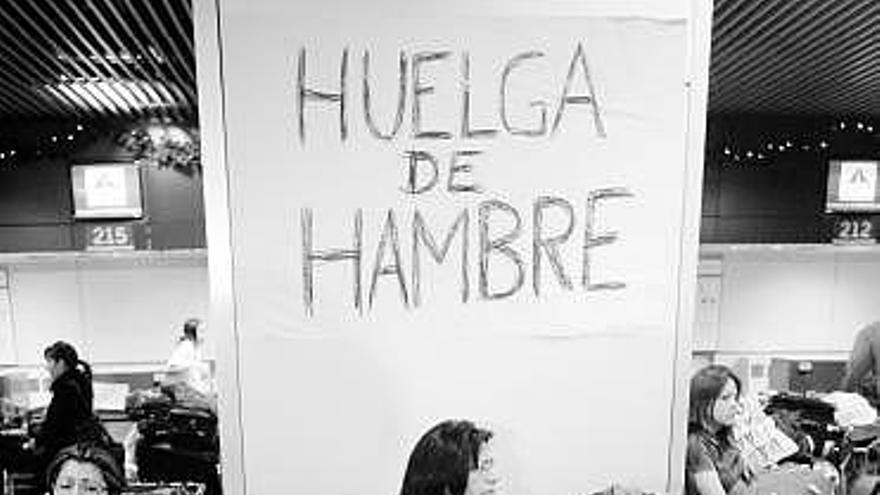 HUELGA
DE
HAMBRE
215
212